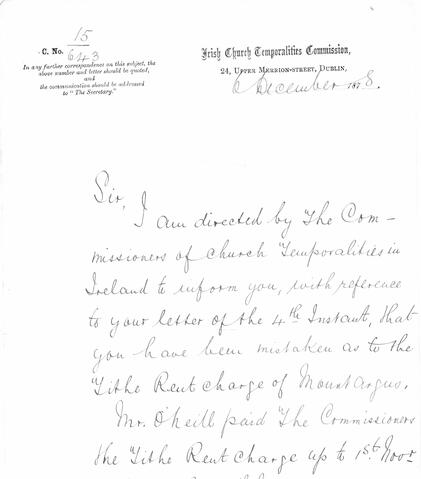 15
C. No. 643
In any further correspondence on this subject, the
above number and letter should be quoted,
and
the communication should be addressed
to "The Secretary."
Irish Church Temporalities Commission,
24, Upper Merrion-street, Dublin,
6 December 1878.
Sir,
I am directed by The Com-
missioners of Church Temporalities in
Ireland to inform you, with reference
to your letter of the 4th Instant, that
you have been mistaken as to the
Tithe Rent charge of Mount Argus.
Mr. O'Neill paid The Commissioners
the Tithe Rent Charge up to 1st Novr